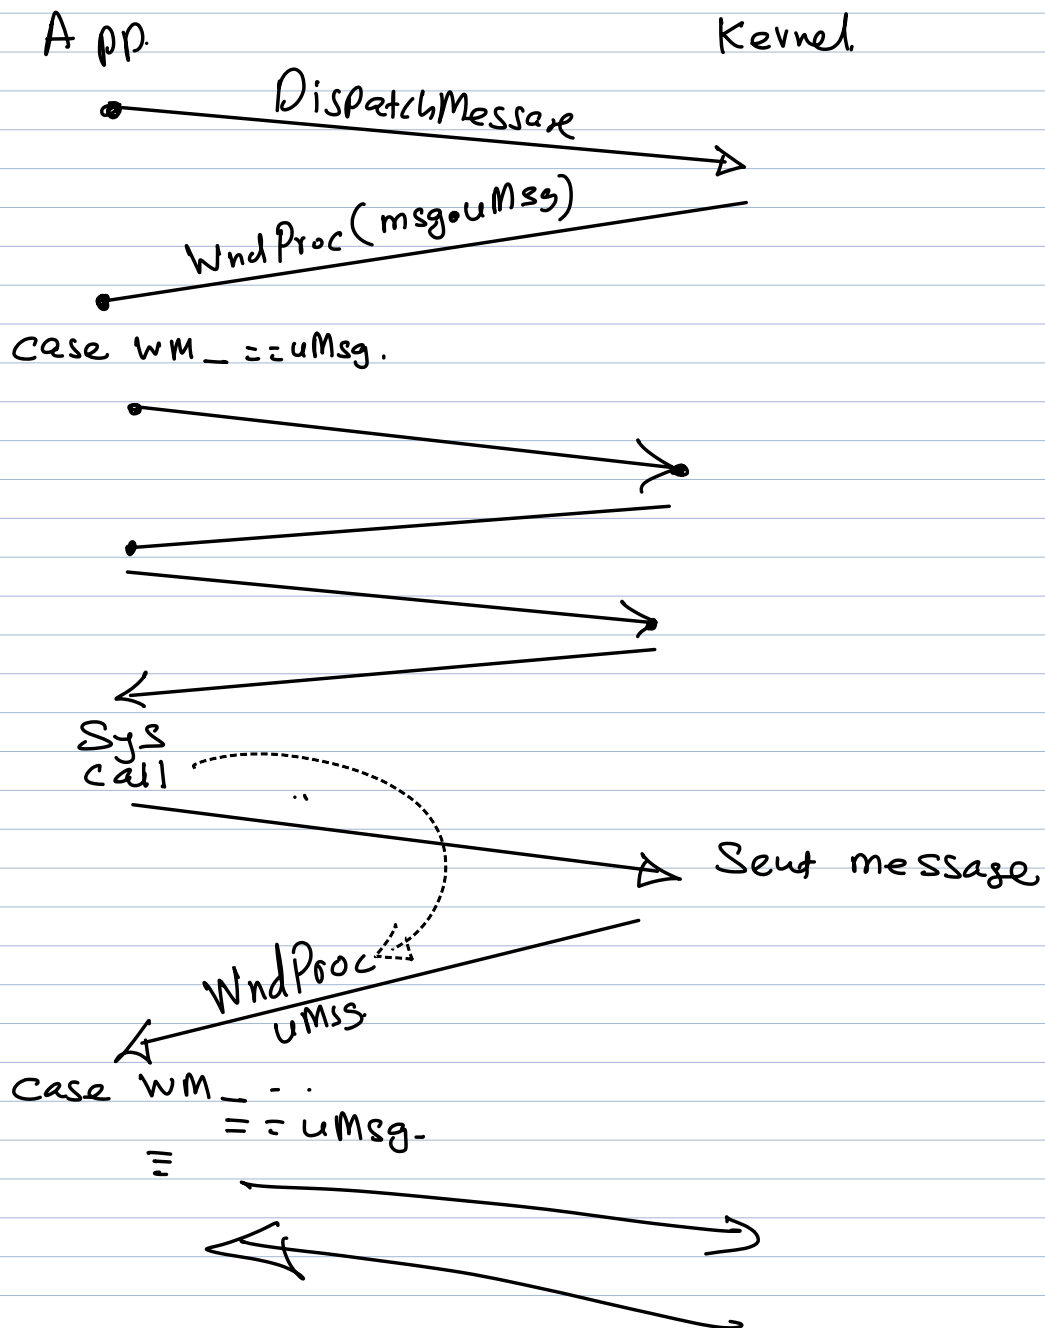 App. Kernel.
DispatchMessage
WndProc(msg.uMsg)
case WM_ ==uMsg.
Sys
call
Sent message
WndProc
uMsg.
case WM_ - .
== uMsg.